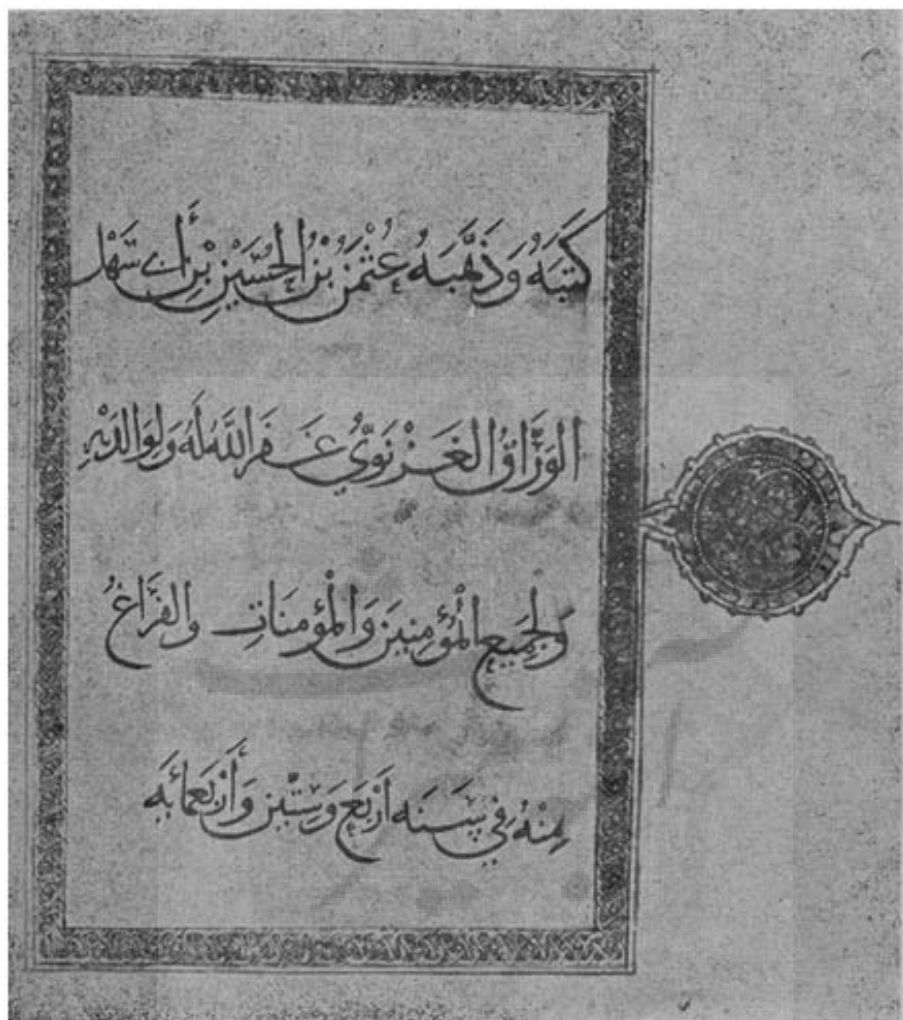 كَتَبَهُ وَذَهَّبَهُ عُثْمَنُ بْنُ الْحُسَيْنِ بْنِ أَبِي سَهْلٍ
الوَرَّاقُ الغَزْنَوِيُّ غَفَرَ اللَّهُ لَهُ وَلِوَالِدَيْهِ
وَلِجَمِيعِ الْمُؤْمِنِينَ وَالْمُؤْمِنَاتِ وَالفَرَاغُ
مِنْهُ فِي سَنَه أَرْبَعٍ وَسِتِّينَ وَأَرْبَعمِائَه